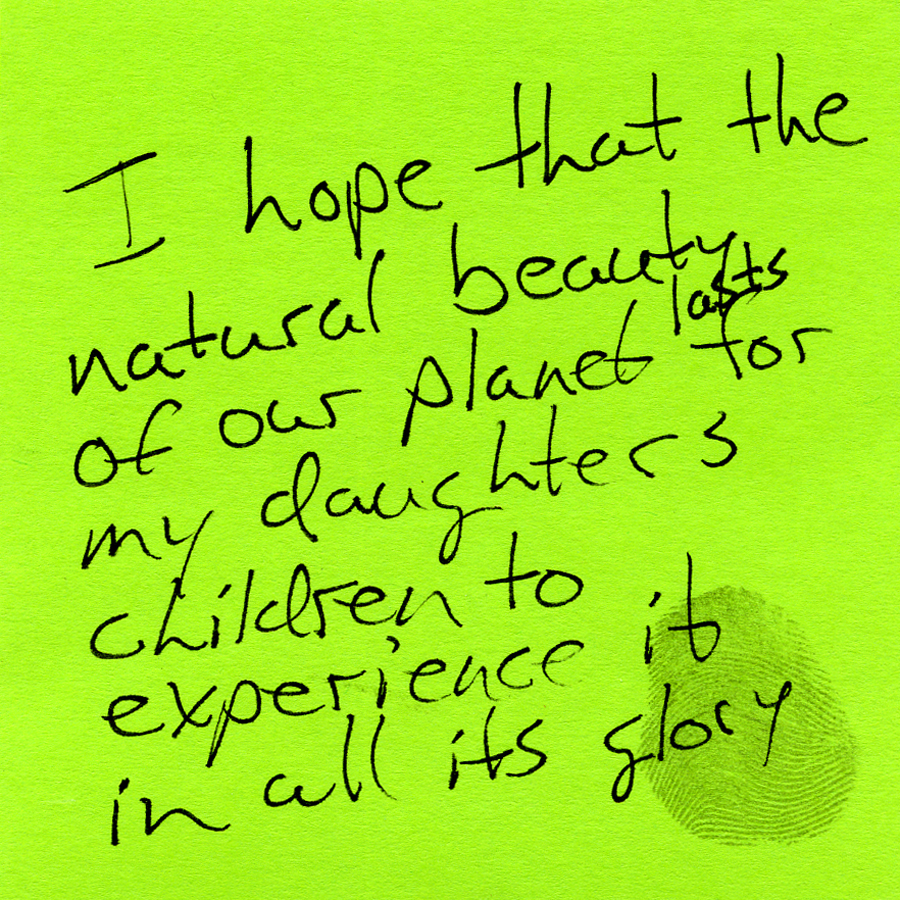 I hope that the
natural beauty
lasts
of our planet for
my daughters
children to
experience it
in all its glory